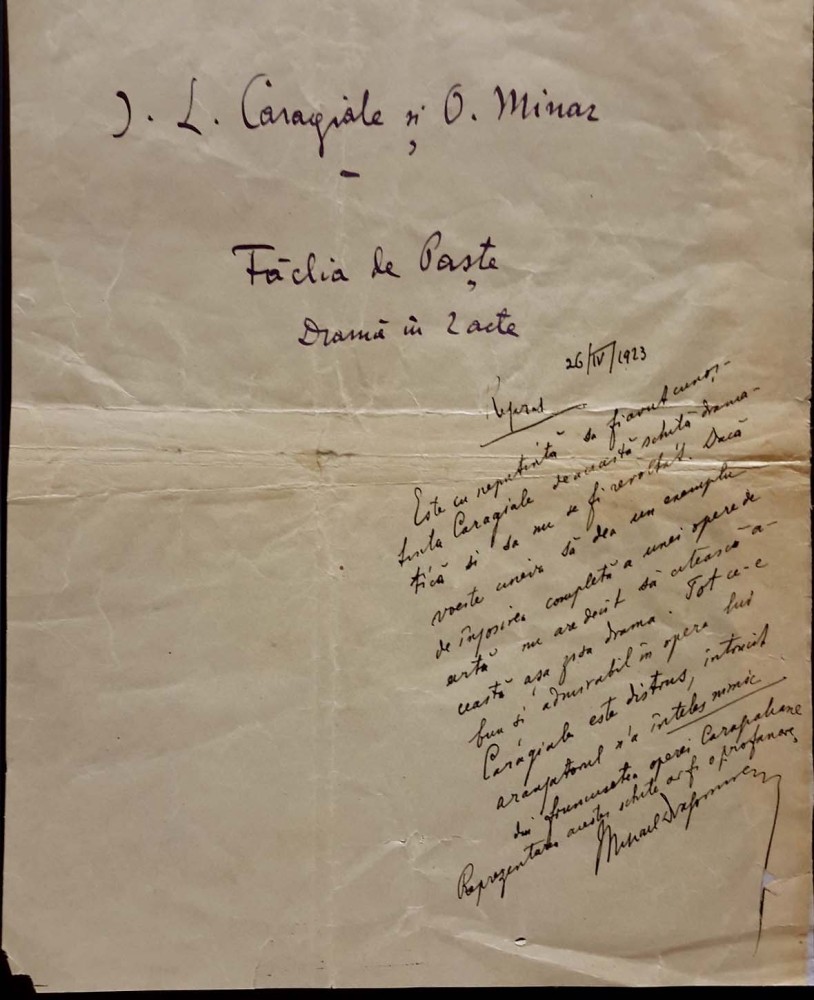 I. L. Caragiale și O. Minar
Făclia de Paște
Dramă în 2 acte
26/IV/1923
Este cu neputință să fi avut cunoș-
tința Caragiale de această schiță drama-
tică și să nu se fi revoltat. Dacă
voește cineva să dea un exemplu
de înjosirea completă a unei opere de
artă nu are decât să citească a-
ceastă așa zisa drama. Tot ce-e
bun și admirabil în opera lui
Caragiale este distrus, întrucât
aranjatorul n'a înteles nimic
din frumusetea operei Caragialiane
Reprezentarea acestei schițe ar fi o profanare.
Mihail